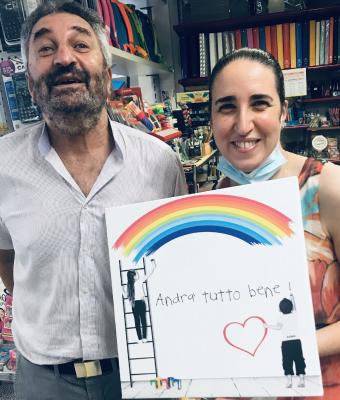 Andra tutto bene!